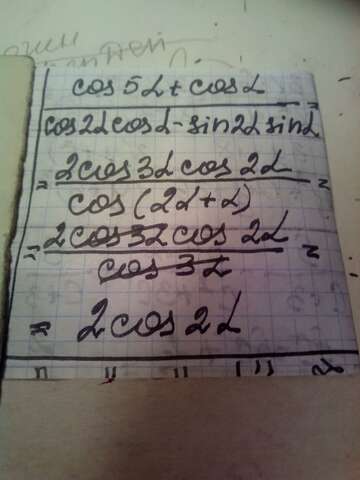 cos 5α + cos α
=
cos 2α cos α - sin 2α sin α
= 2 cos 3α cos 2α
=
cos (2α + α)
= 2 cos 3α cos 2α
=
cos 3α
= 2 cos 2α